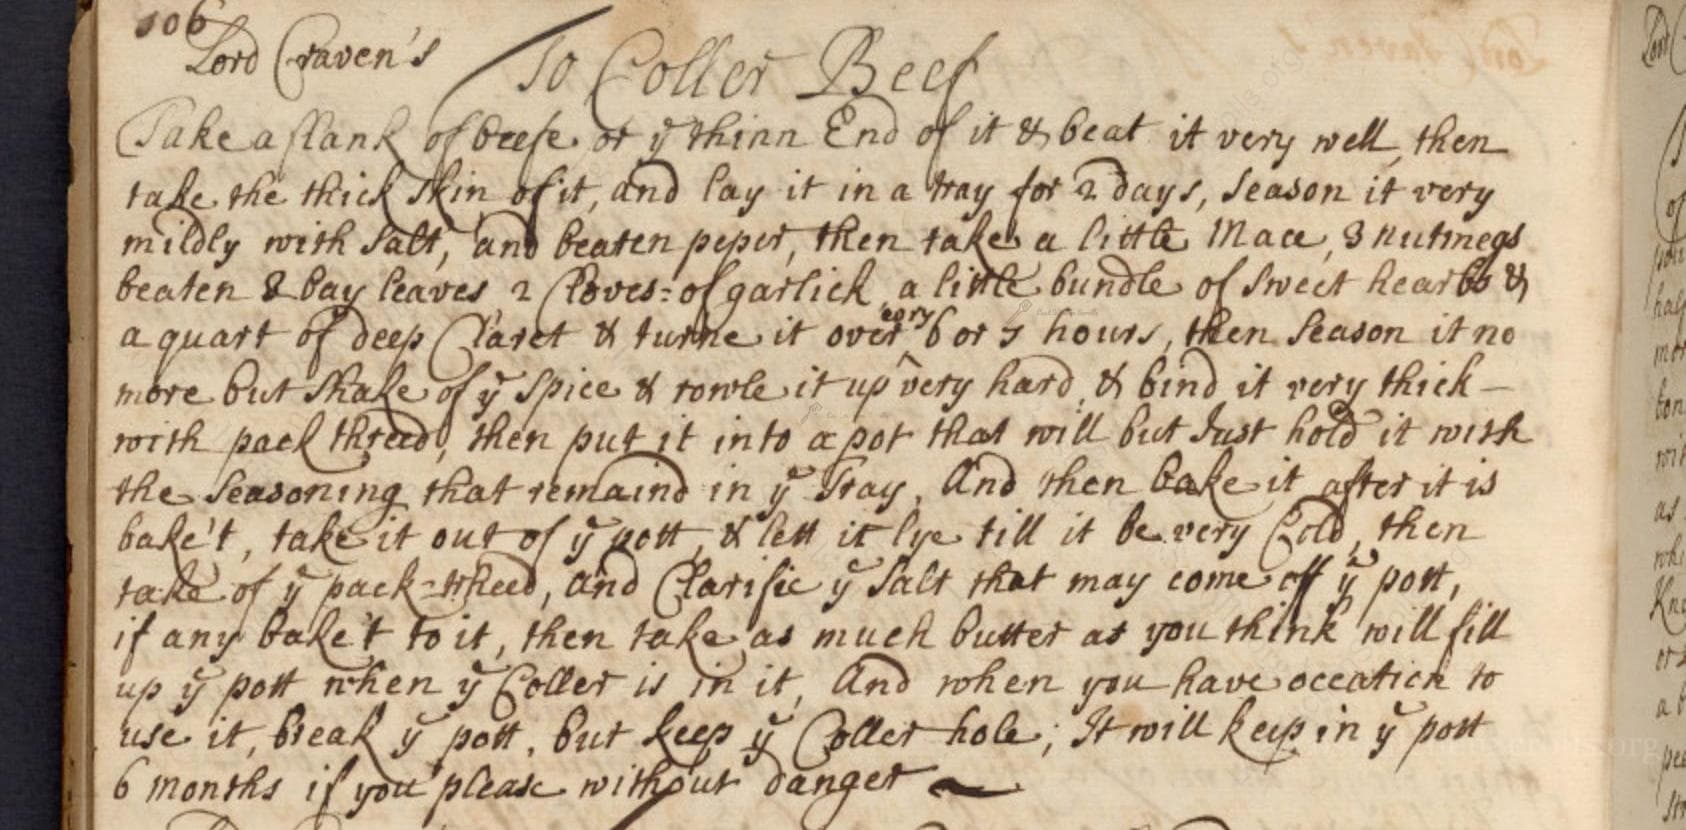 106
Lord Craven's
To Coller Beef
Take a flank of beefe or yͤ thinn End of it & beat it very well, then
take the thick skin of it, and lay it in a tray for 2 days, season it very
mildly with salt, and beaten peper, then take a little Mace, 3 nutmegs
beaten 8 bay leaves 2 Cloves = of garlick, a little bundle of sweet hearbs &
a quart of deep Claret & turne it over
every
6 or 7 hours, then season it no
more but shake of yͤ spice & rowle it up ^ very hard, & bind it very thick –
with pack thread, then put it into a pot that will but Just hold it with
the seasoning that remaind in yͤ Tray, And then bake it after it is
bake't, take it out of yͤ pott, & lett it lye till it be very Cold, then
take of yͤ pack = thred, and Clarifie yͤ salt that may come off yͤ pott,
if any bake't to it, then take as much butter as you think will fill
up yͤ pott when yͤ Coller is in it, And when you have occation to
use it, break yͤ pott, but keep yͤ Coller hole; It will keep in yͤ pott
6 months if you please without danger ~